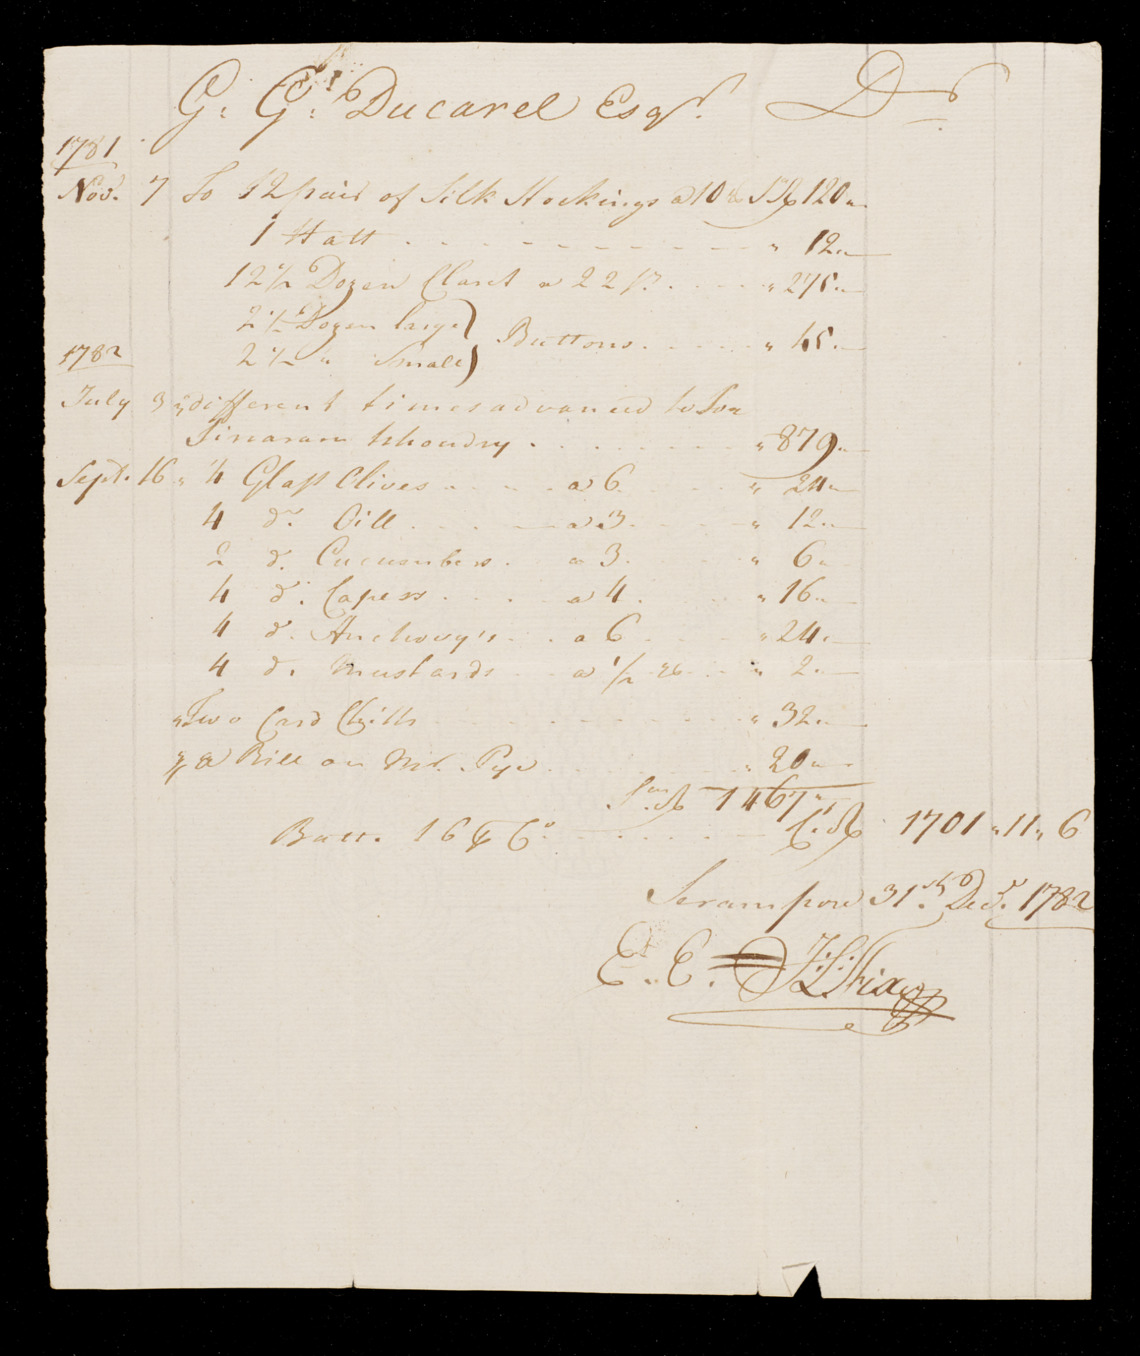 G: G: Ducarel Esqr. Dr.
1781
Nov. 7 To 12 pair of Silk Stockings a 10 120 "
1 Hatt . . . . " 12 "
12 1/2 Dozen Claret a 22 . . . . " 275 "
2 1/2 Dozen large
Buttons . . . . " 45 "
1782
2 1/2 " Small
July 3 " different times advanced to
. . . . " 879 "
Sept. 16 " 4 Glass Olives . . . . a 6 " 24 "
4 do. Oill . . . . a 3 " 12 "
2 do. Cucumbers . a 3 " 6 "
4 do. Capess . . . a 4 . " 16 "
4 do. Anchovy's . . . a 6 " 24 "
4 do. Mustards . . . a 1/2 " 2 "
" Two Card . . . . " 32 "
a Bill on Mr. Pye . . . . " 20 "
1467 "
Batt. 16 . . . . 1701 " 11 " 6
Serampore 31st. Decr. 1782
E. E.